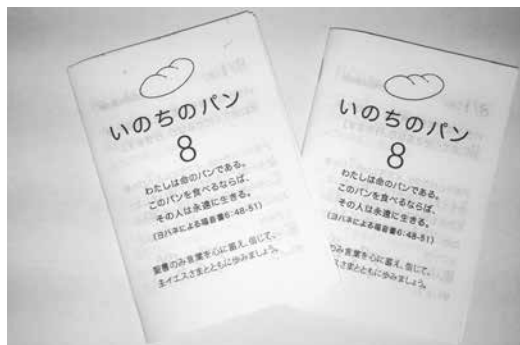 いのちのパン
8
わたしは命のパンである。
このパンを食べるならば、
その人は永遠に生きる。
(ヨハネによる福音書6:48-51)
聖書のみ言葉を心に蓄え、信じて、
主イエスさまとともに歩みましょう。
いのちのパン
8
わたしは命のパンである。
このパンを食べるならば、
その人は永遠に生きる。
(ヨハネによる福音書6:48-51)
のみ言葉を心に蓄え、信じて、
スさまとともに歩みましょう。